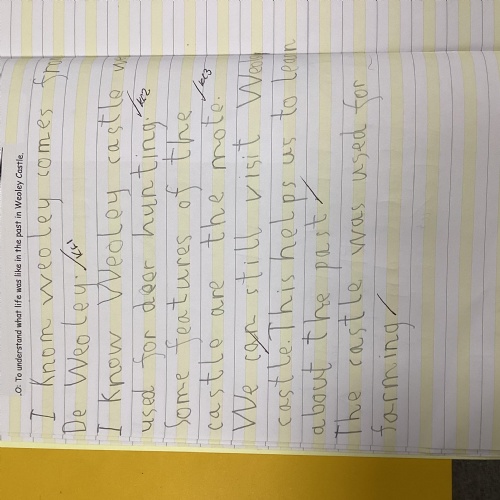 .O: To understand what life was like in the past in Weoley Castle.
I Know weoley comes fro
De Weoley. kc1
I Know Weoley castle w
used for deer hunting. kc2
Some features of the
castle are the mote. kc3
We can still visit Weole
castle. This helps us to learn
about the past
The castle was used for
farming